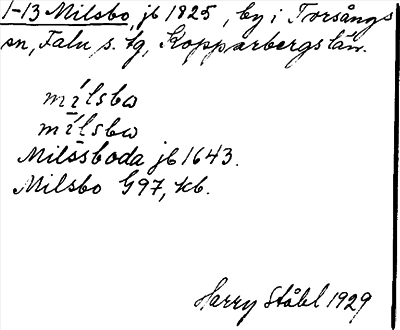 1-13 Milsbo, jb 1825, by i Torsångs
sn, Falu s. tg, Kopparbergs län.
mílsbo
mílsbo
Milssboda jb 1643.
Milsbo G97, kb.
Harry Ståhl 1929